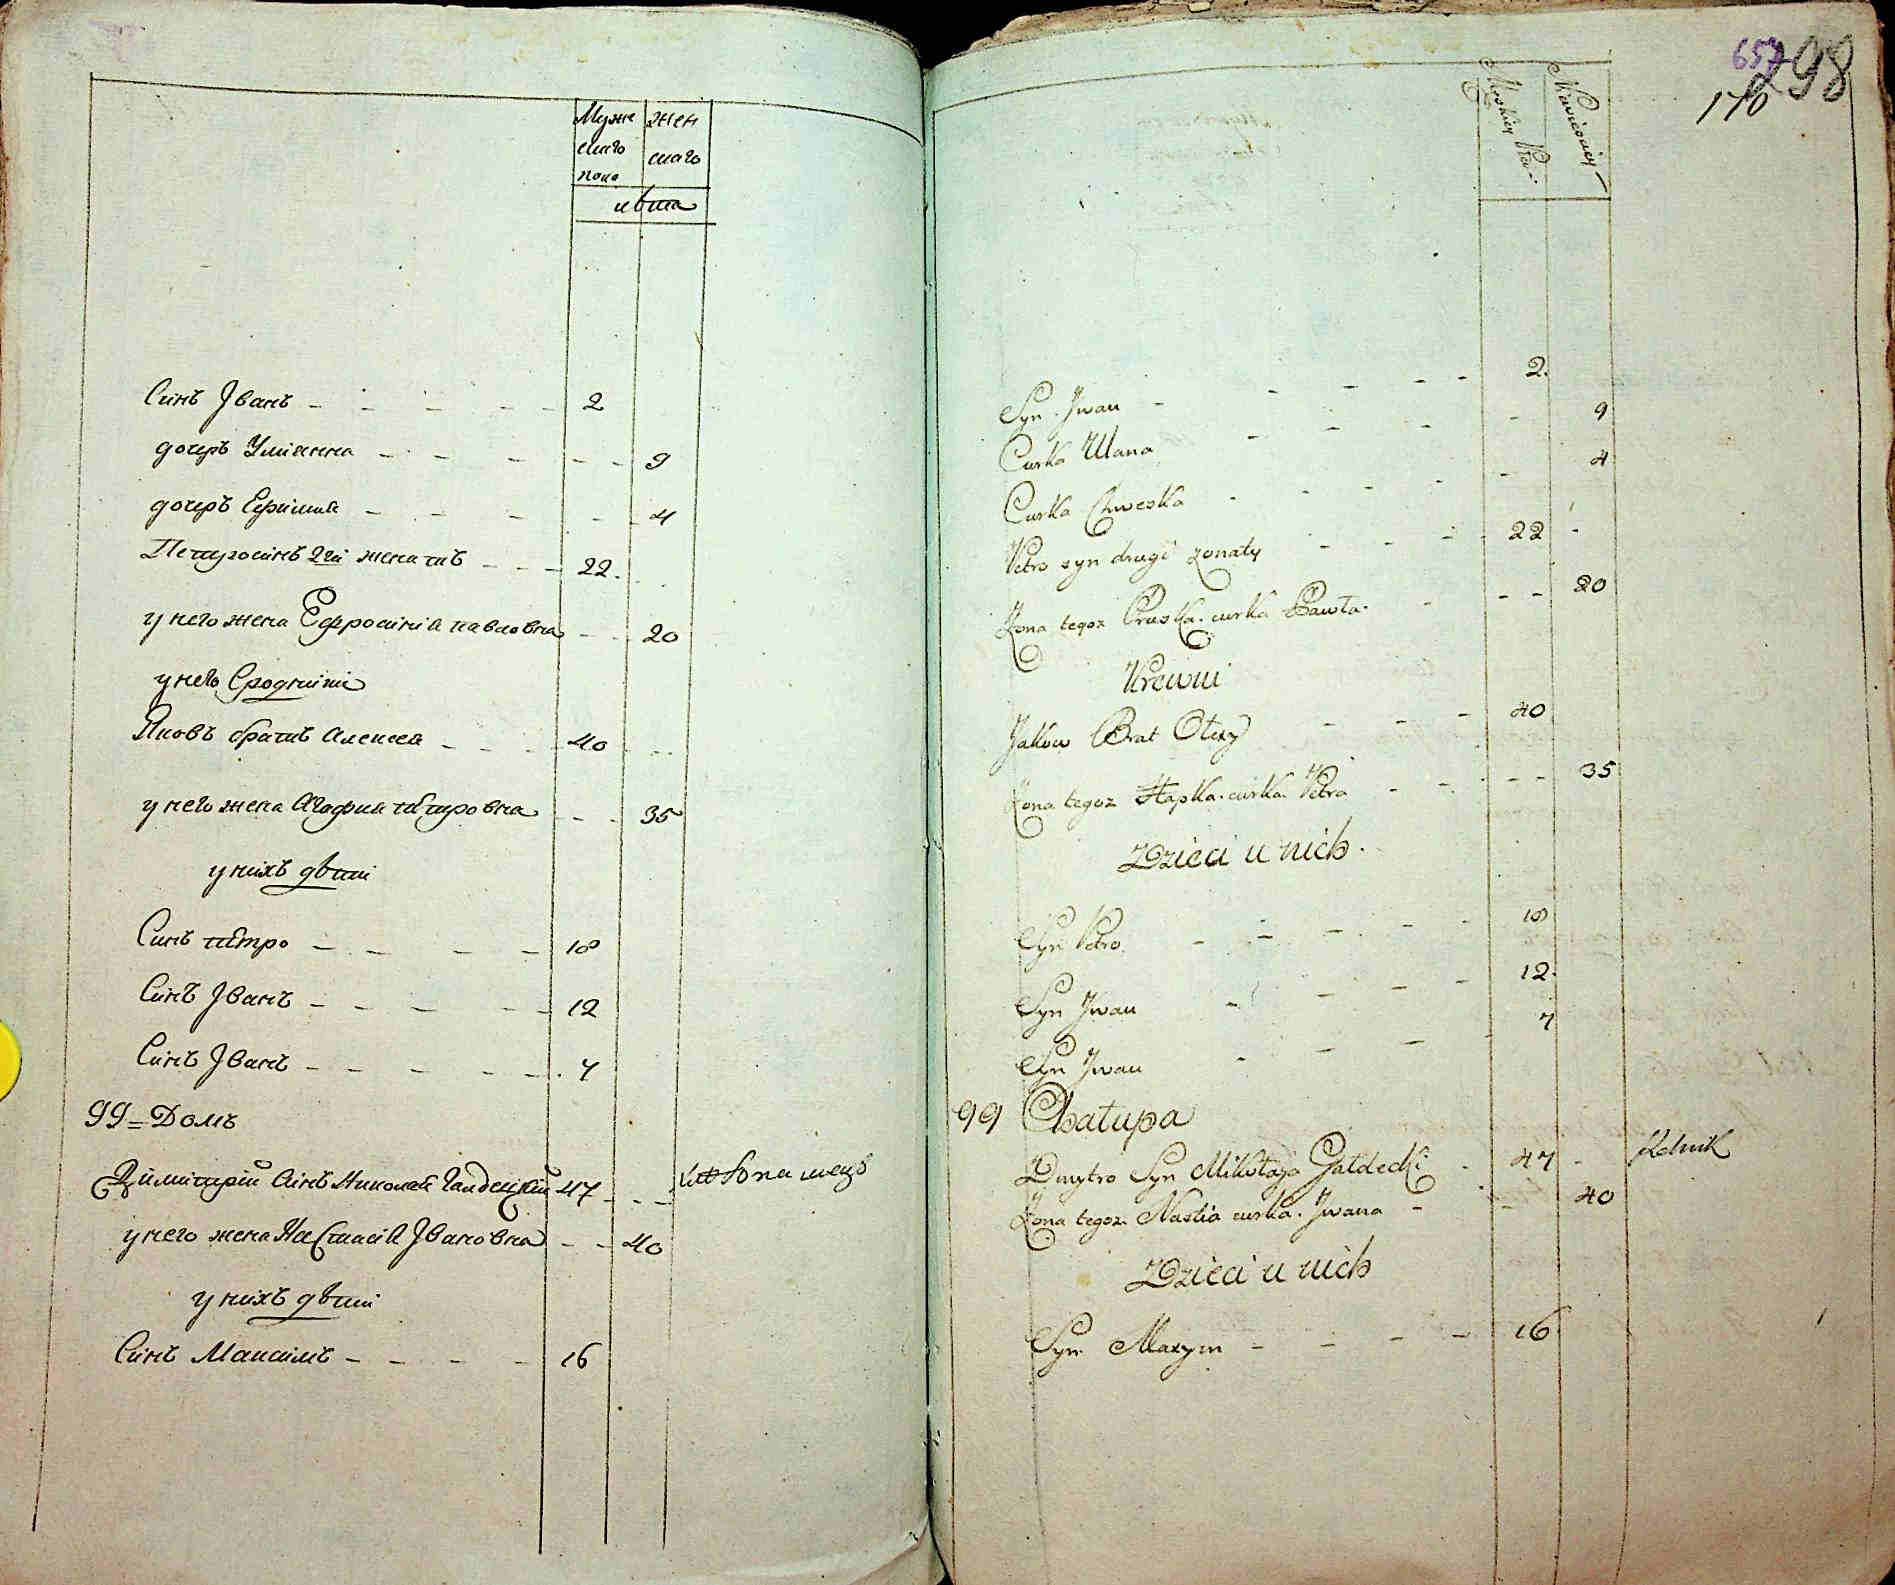 Муже жен
скаго скаго
пола
лѣта
Синъ Іванъ 2
дочеръ Уліянна 9
дочеръ Ефимия 4
Петръ синъ 2й женатъ 22
у него жена Ефросинія павловна 20
у него Сродники
Яковъ братъ Алексея 40
у него жена Агафия пѣтровна 35
у нихъ дѣти
Синъ пѣтро 18
Синъ Іванъ 12
Синъ Іванъ 7
99 = Домъ
Димитрій Синъ Николая Галдецкій 47 хлѣбопашецъ
у него жена Настасія Івановна 40
у нихъ дѣти
Синъ Максимъ 16
657
298
170
Syn Jwan 2
Curka Ulana 9
Curka Chweska 4
Petro syn drugi żonaty 22
Zona tegoz Pruska curka Pawła 20
Krewni
Jakow Brat Olexy 40
Zona tegoz Hapka curka Petra 35
Dzieci u nich
Syn Petro 18
Syn Jwan 12
Syn Jwan 7
99 Chałupa
Dmytro Syn Mikołaja Gałdecki 47 Rolnik
Zona tegoz Nastia curka Jwana 40
Dzieci u nich
Syn Maxym 16